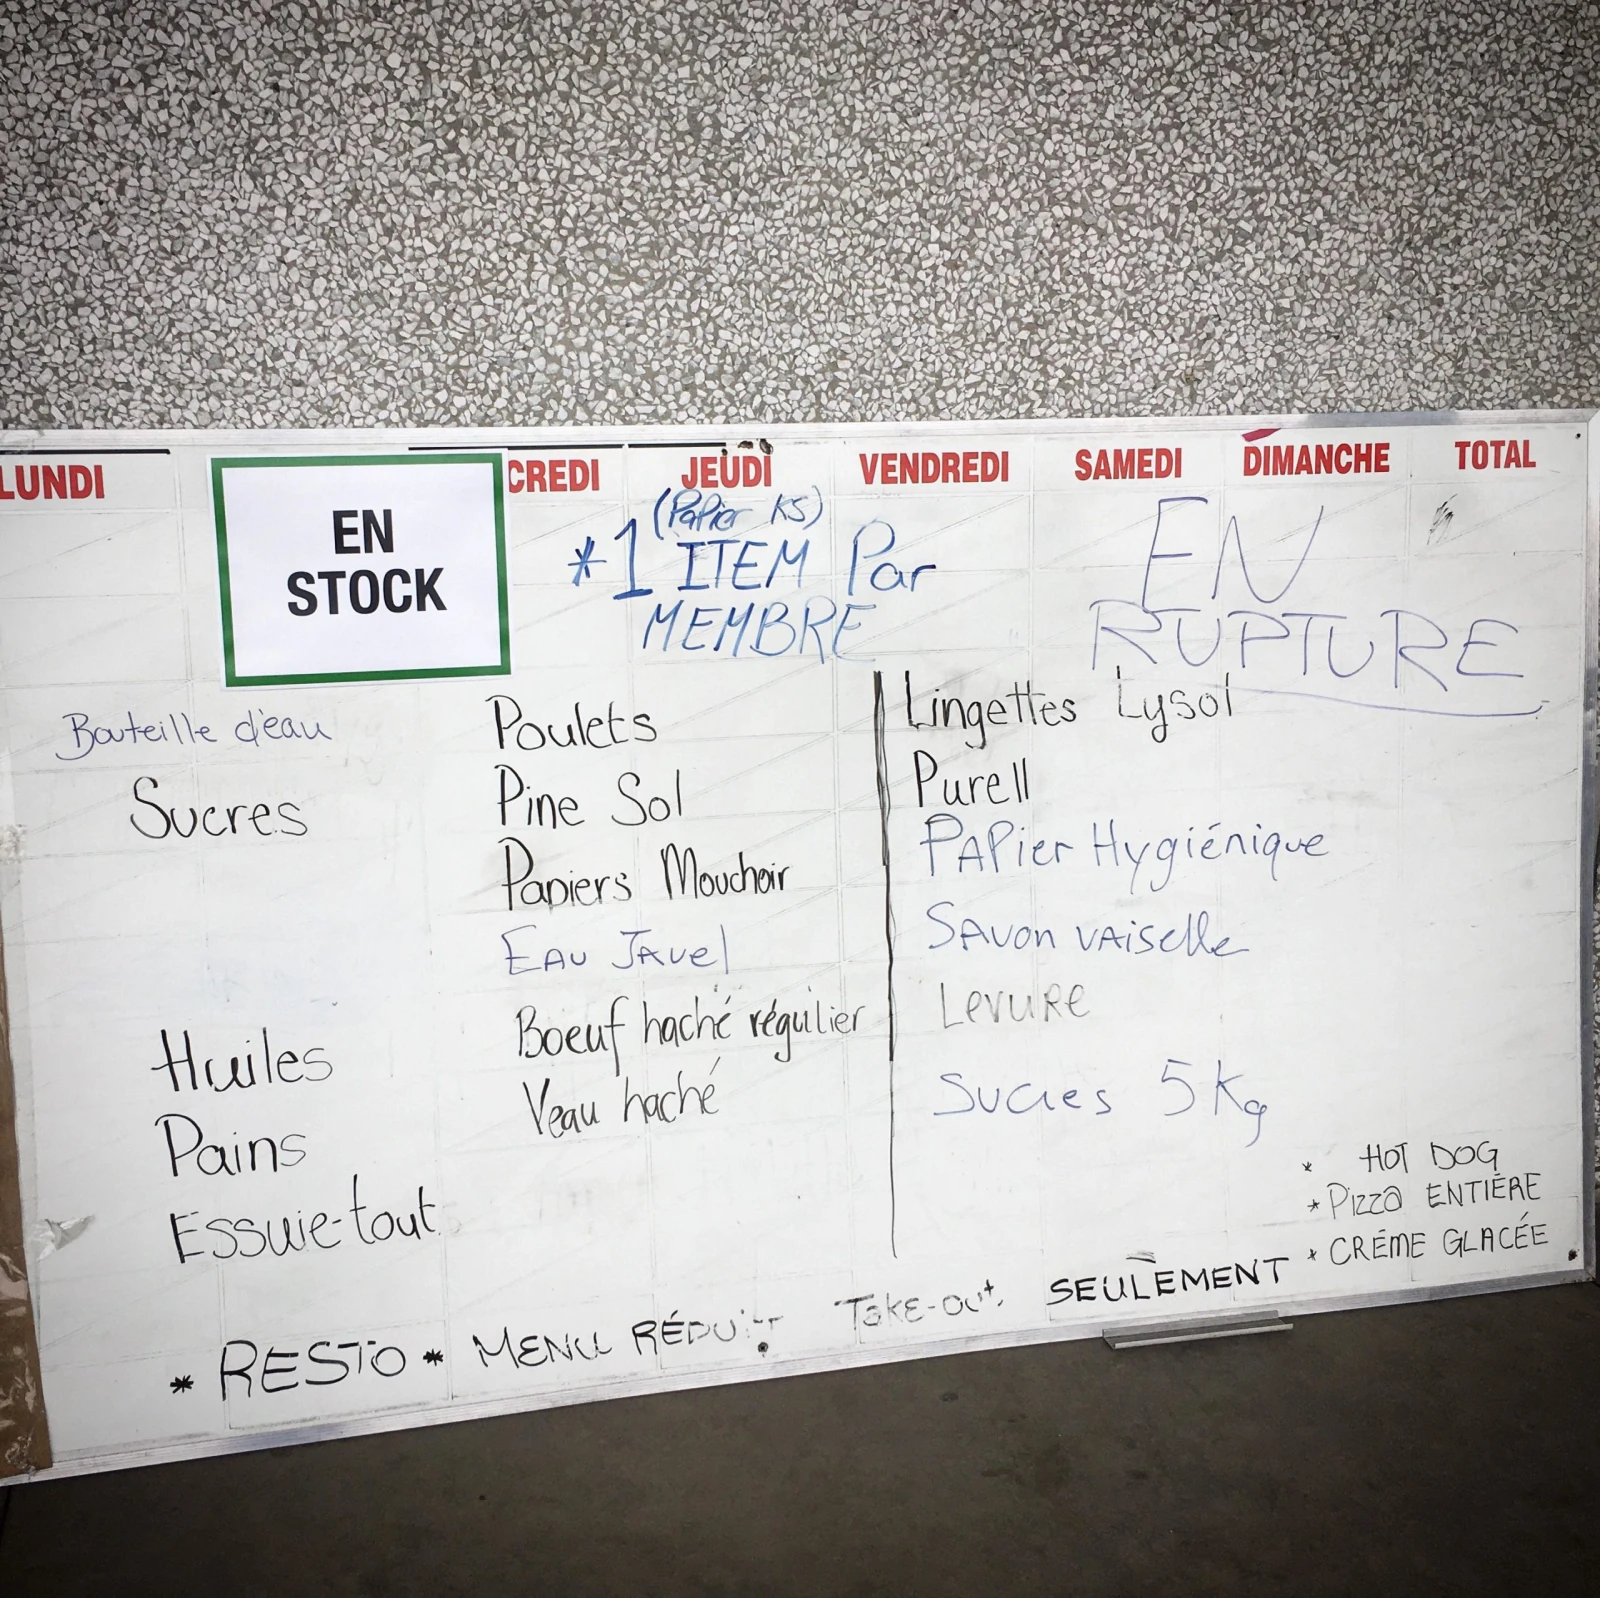 LUNDI
CREDI
JEUDI
VENDREDI
SAMEDI
DIMANCHE
TOTAL
EN
STOCK
(Papier KS)
*1 ITEM Par
MEMBRE
EN
RUPTURE
Bouteille d'eau
Sucres
Huiles
Pains
Essuie-tout
Poulets
Pine Sol
Papiers Mouchoir
EAU JAvel
Boeuf haché régulier
Veau haché
Lingettes Lysol
Purell
PAPier Hygiénique
SAvon vAiselle
Levure
Sucres 5 Kg
* HOT DOG
* Pizza ENTIÈRE
* CRÈME GLACÉE
* RESTO * MENU RÉDUIT Take-out SEULEMENT